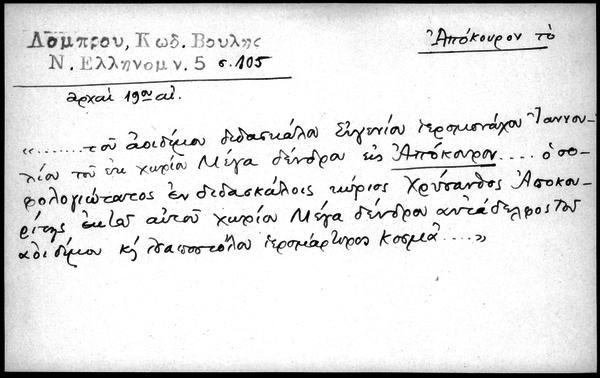 Λάμπρου, Κωδ. Βουλῆς
Ἀπόκουρον τὸ
Ν. Ελληνομν. 5 σ. 105
ἀρχαὶ 19ου αἰ.
«......τοῦ ἀοιδίμου διδασκάλου Εὐγενίου ἱερομονάχου Ἰαννου-
λίου τοῦ ἐκ χωρίου Μέγα δένδρον εἰς Ἀπόκουρον.... ὁ σο-
φολογιώτατος ἐν διδασκάλοις κύριος Χρύσανθος Ἀποκου-
ρίτης ἐκ τοῦ αὐτοῦ χωρίου Μέγα δένδρου αὐτάδελφος τοῦ
ἀοιδίμου κὴ ἱεροαποστόλου ἱερομάρτυρος Κοσμᾶ....»